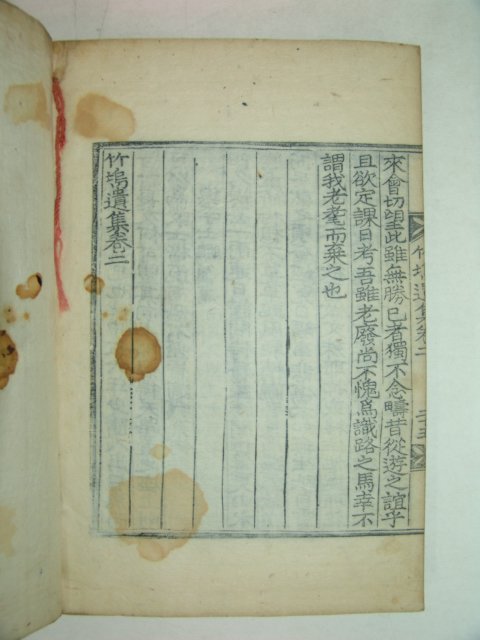 來會切望此雖無勝已者獨不念疇昔從遊之誼乎
且欲定課日考吾雖老廢尚不愧爲識路之馬幸不
謂我老耄而棄之也
竹塢遺集卷二
竹塢遺集卷二